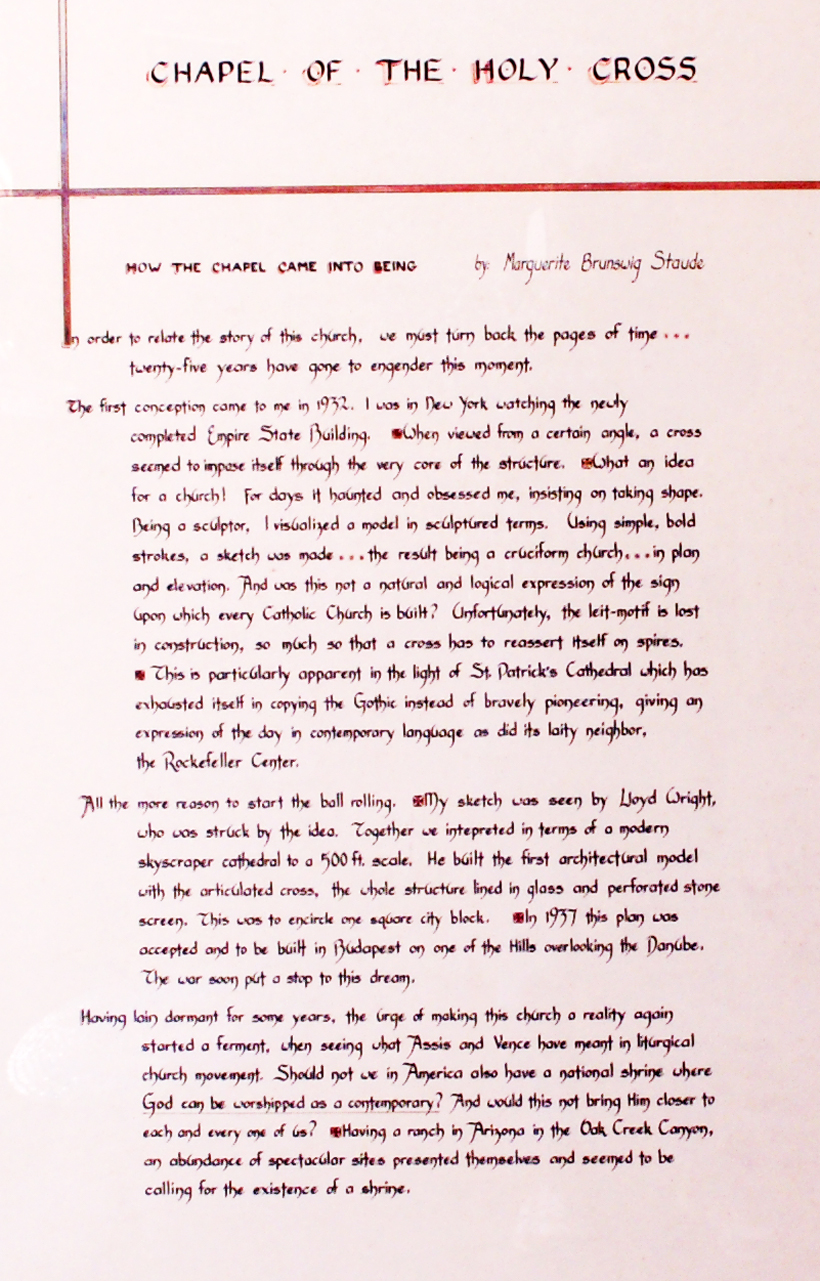 CHAPEL · OF · THE · HOLY · CROSS
HOW THE CHAPEL CAME INTO BEING by: Marguerite Brunswig Staude
In order to relate the story of this church, we must turn back the pages of time...
twenty-five years have gone to engender this moment.
The first conception came to me in 1932. I was in New York watching the newly
completed Empire State Building. ✠When viewed from a certain angle, a cross
seemed to impose itself through the very core of the structure. ✠What an idea
for a church! For days it haunted and obsessed me, insisting on taking shape.
Being a sculptor, I visualized a model in sculptured terms. Using simple, bold
strokes, a sketch was made...the result being a cruciform church...in plan
and elevation. And was this not a natural and logical expression of the sign
upon which every Catholic Church is built? Unfortunately, the leit-motif is lost
in construction, so much so that a cross has to reassert itself on spires.
✠ This is particularly apparent in the light of St. Patrick's Cathedral which has
exhausted itself in copying the Gothic instead of bravely pioneering, giving an
expression of the day in contemporary language as did its laity neighbor,
the Rockefeller Center.
All the more reason to start the ball rolling. ✠My sketch was seen by Lloyd Wright,
who was struck by the idea. Together we intepreted in terms of a modern
skyscraper cathedral to a 500 ft. scale. He built the first architectural model
with the articulated cross, the whole structure lined in glass and perforated stone
screen. This was to encircle one square city block. ✠In 1937 this plan was
accepted and to be built in Budapest on one of the Hills overlooking the Danube.
The war soon put a stop to this dream.
Having lain dormant for some years, the urge of making this church a reality again
started a ferment, when seeing what Assis and Vence have meant in liturgical
church movement. Should not we in America also have a national shrine where
God can be worshipped as a contemporary? And would this not bring Him closer to
each and every one of us? ✠Having a ranch in Arizona in the Oak Creek Canyon,
an abundance of spectacular sites presented themselves and seemed to be
calling for the existence of a shrine.